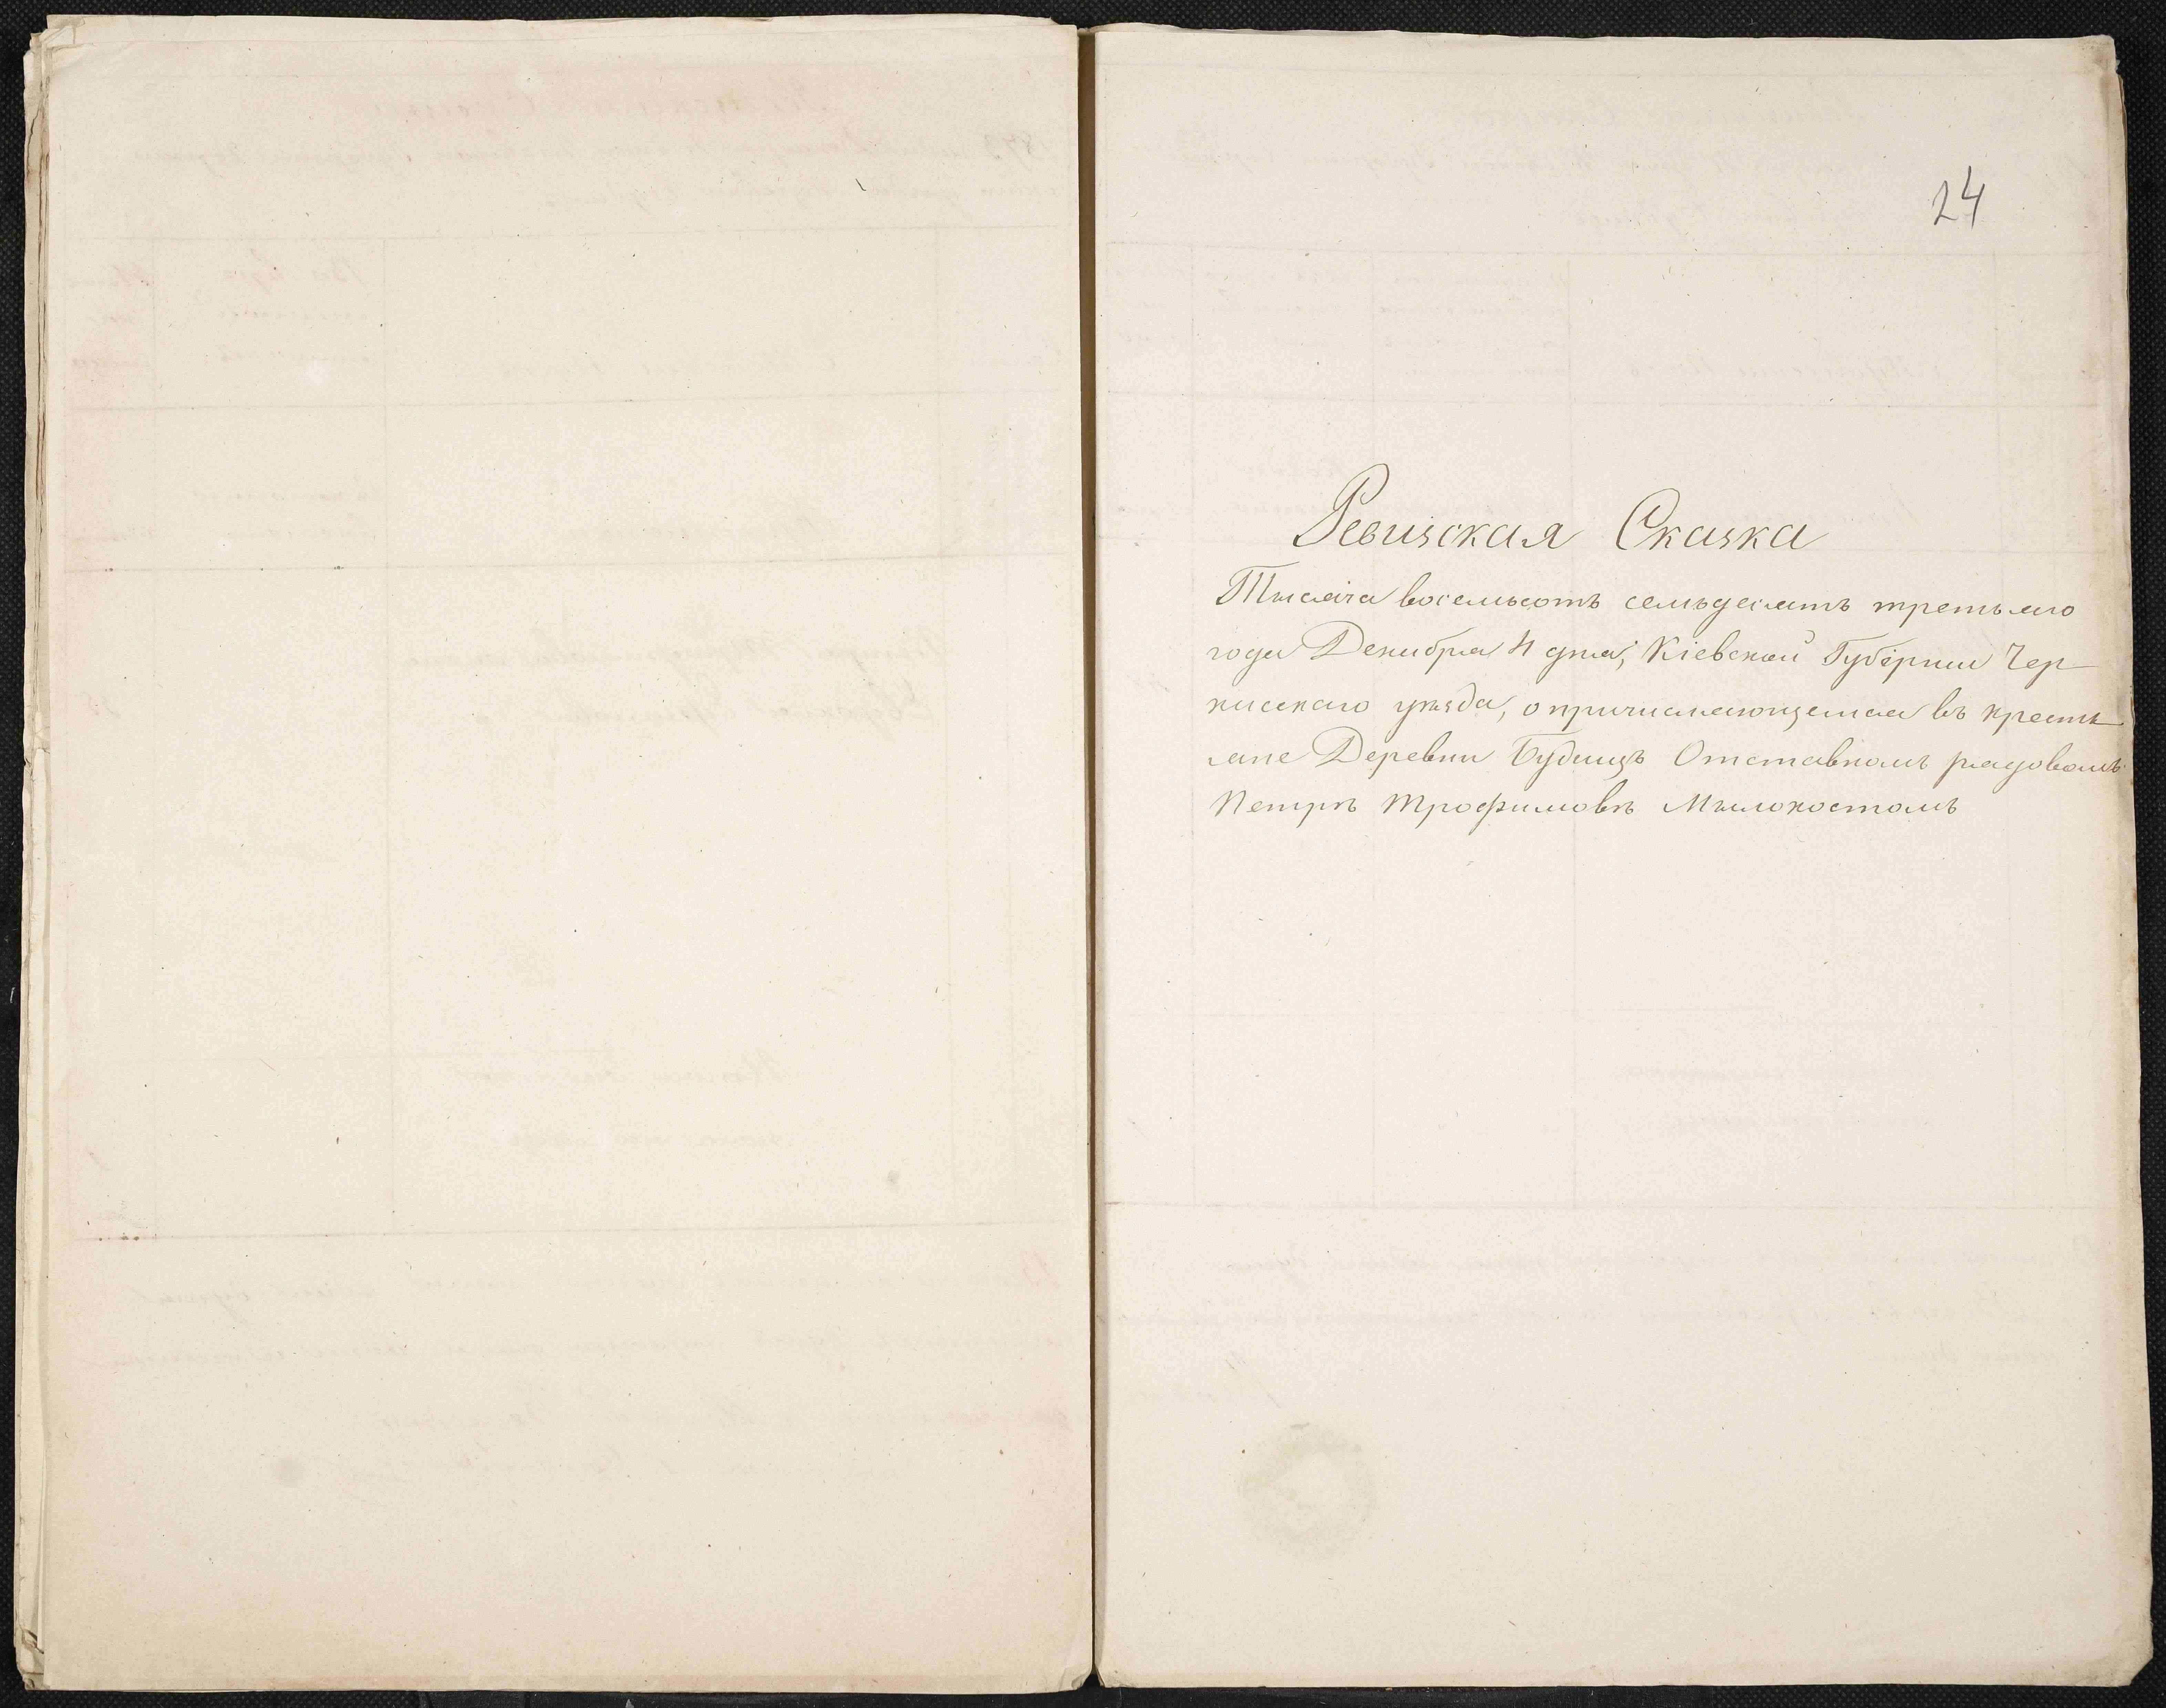 24
Ревизская Сказка
Тысяча восемьсотъ семьдесятъ третьяго
года Декабря 4 дня, Кіевской Губерніи Чер-
каскаго уѣзда, о причисляющемся въ кресть
яне Деревни Будищъ Отставномъ рядовомъ
Петрѣ Трофимовѣ Милокостомъ